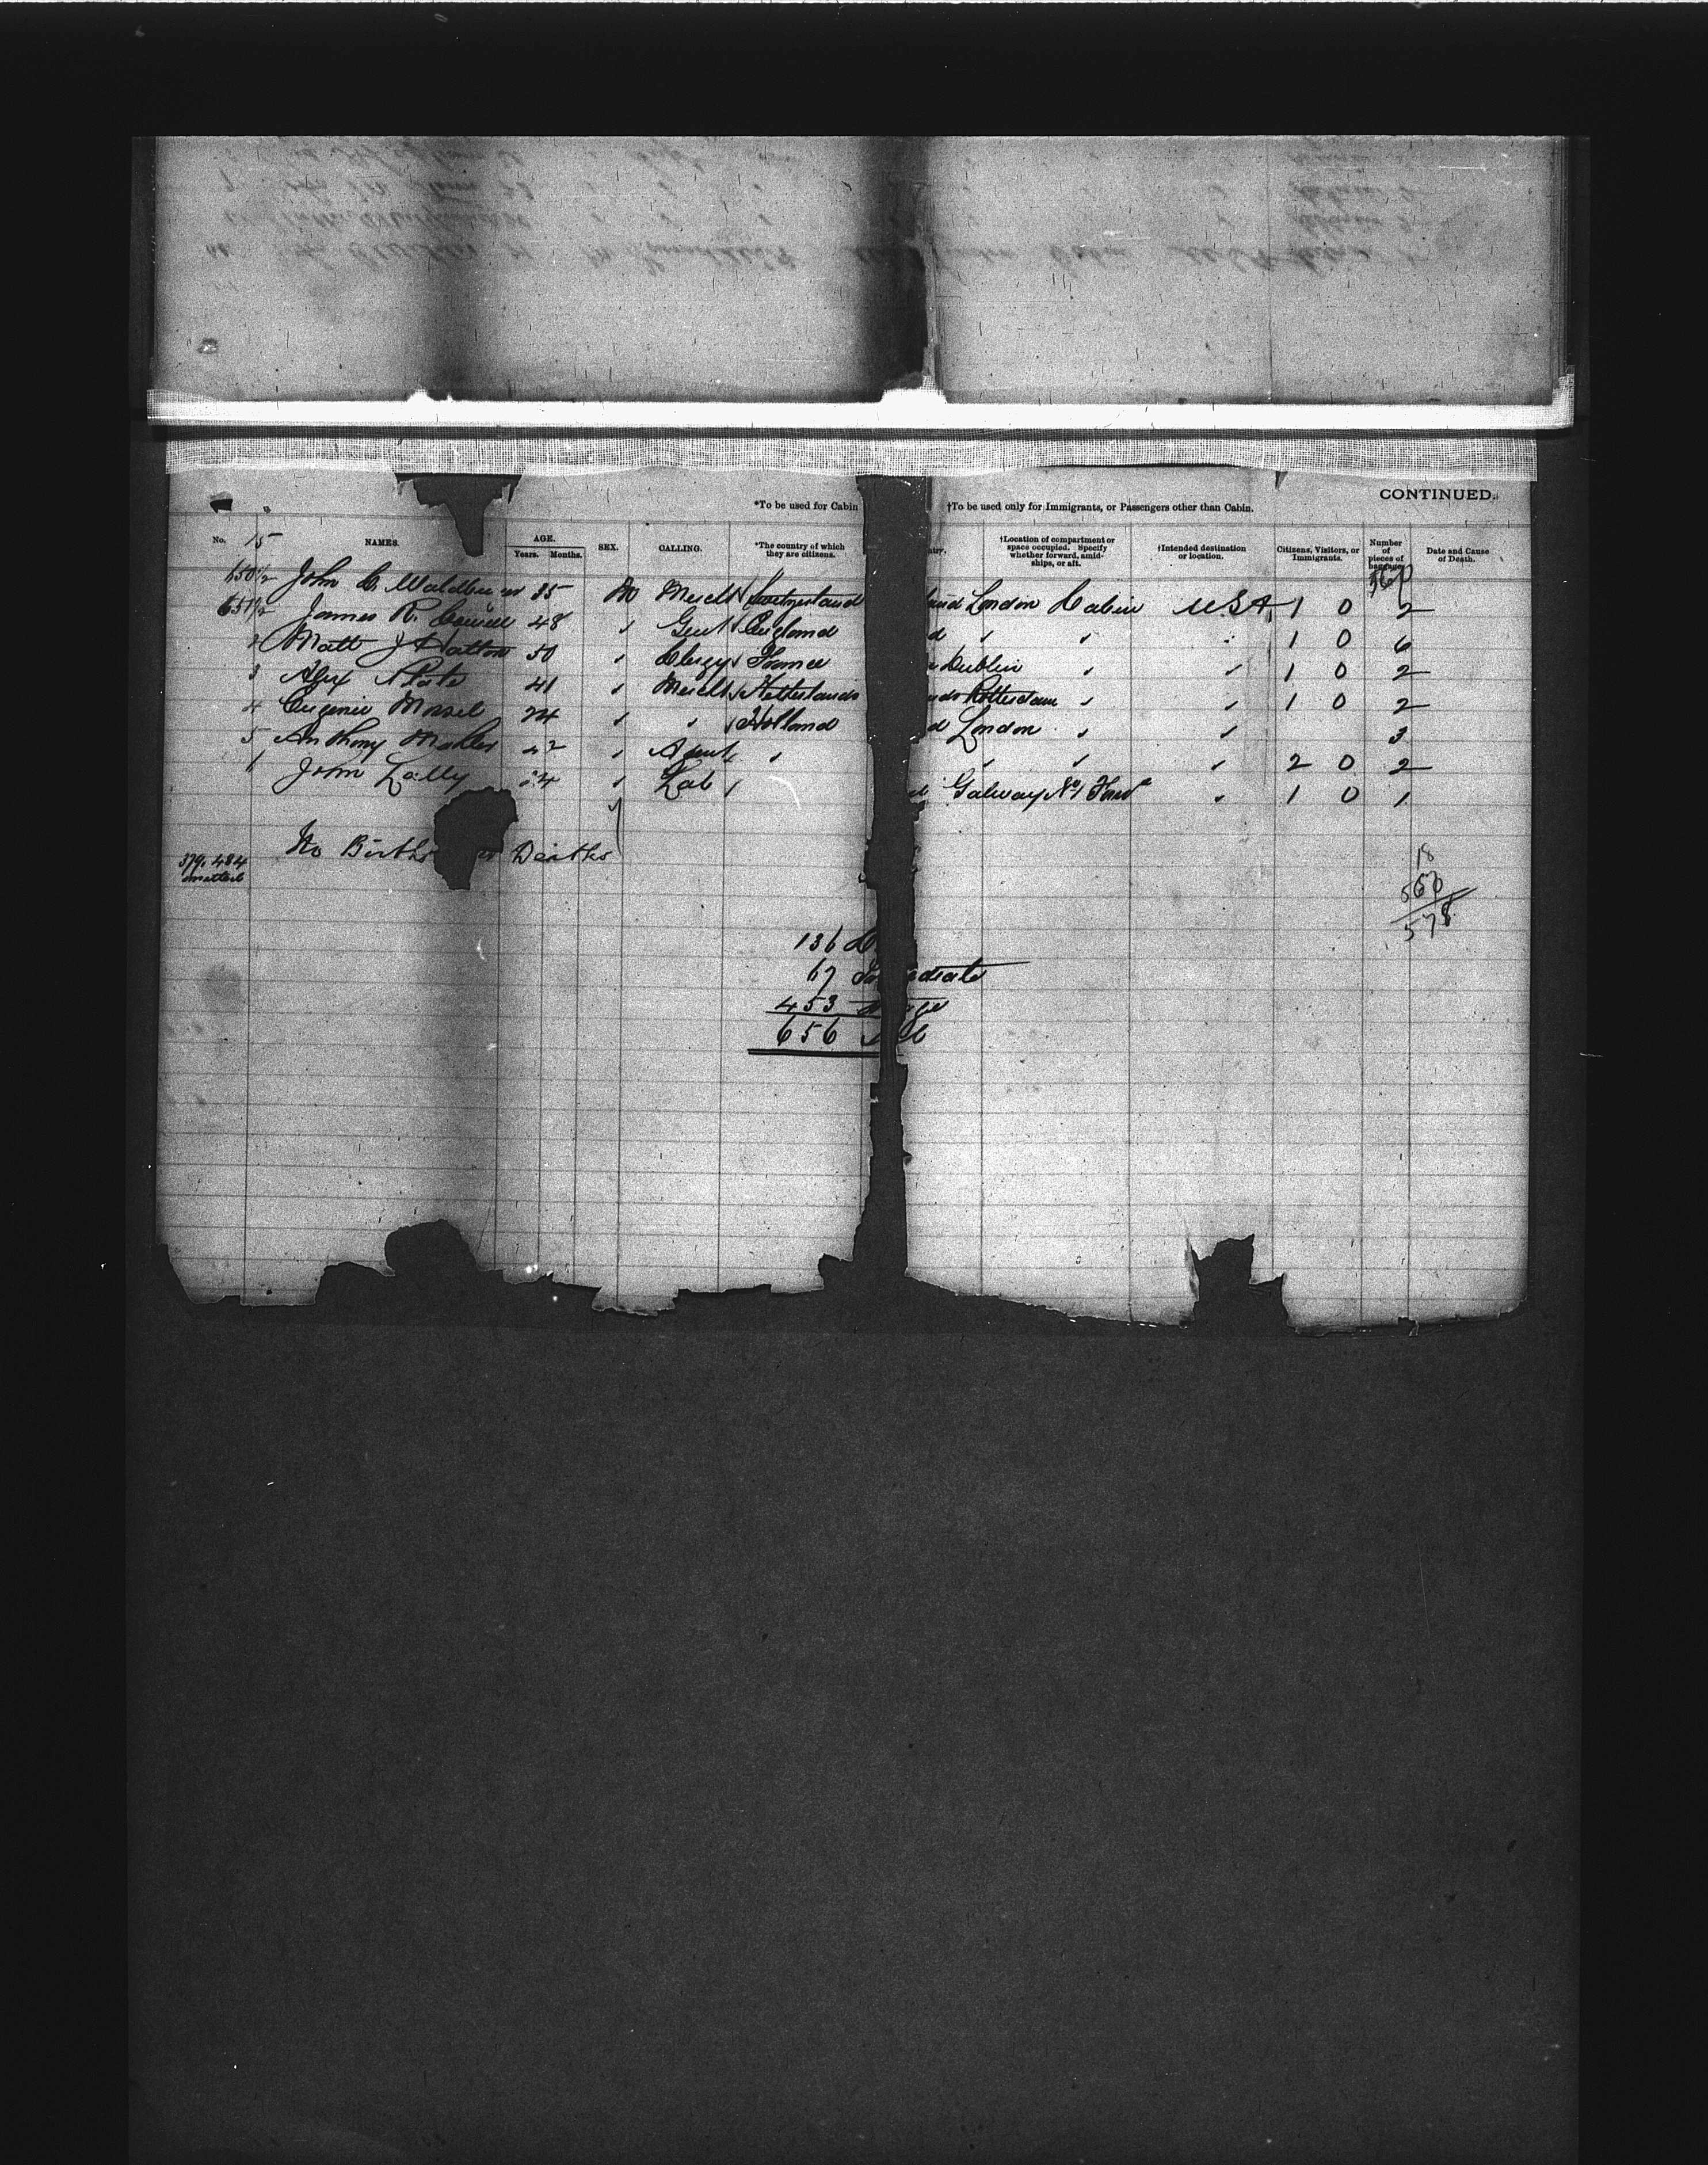 CONTINUED.
*To be used for Cabin †To be used only for Immigrants, or Passengers other than Cabin.
No. 15 NAMES. AGE. Years. Months. SEX. CALLING. *The country of which they are citizens. †Location of compartment or space occupied. Specify whether forward, amid-ships, or aft. †Intended destination or location. Citizens, Visitors, or Immigrants. Number of pieces of baggage. Date and Cause of Death.
560
650½ John C. 35 M Mercht Switzerland London Cabin USA 1 0 2
651½ James R. 48 " Gent England " " " 1 0 6
2 Matt J Hatton 50 " Clergy France Dublin " " 1 0 2
3 Alex Plate 41 " Mercht Netherlands Rotterdam " " 1 0 2
4 Eugenie Morsel 24 " " Holland London " " 3
5 Anthony 42 " Agent " " " " 2 0 2
1 John Lally 24 " Lab Galway No 1 Forwd " 1 0 1
No Births Deaths
379. 484
omitted
18
560
578
136
67
453
656